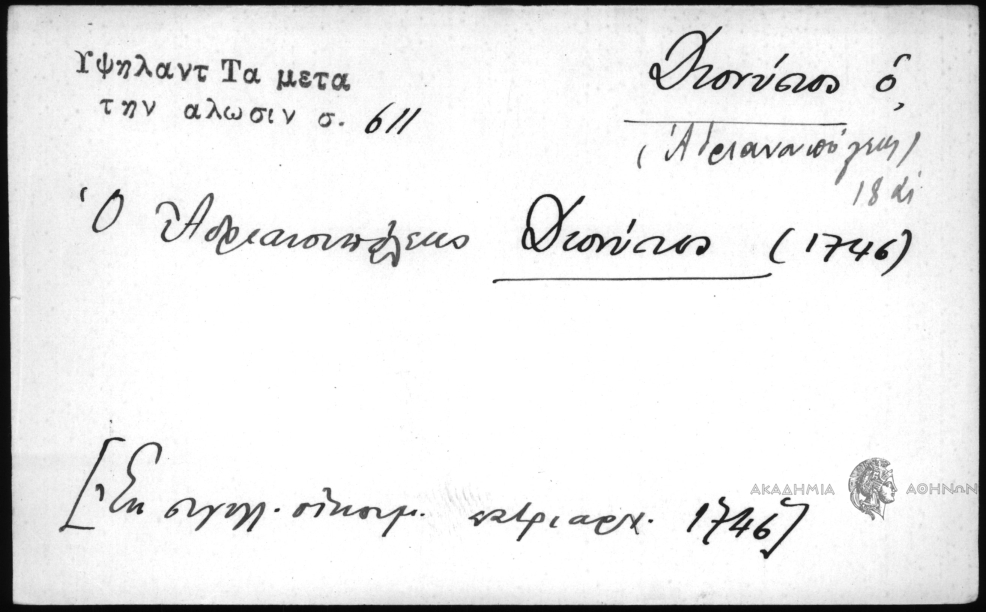 Υψηλαντ Τα μετα
την αλωσιν σ. 611
Διονύσιος ὁ,
(Ἀδριανουπόλεως)
18 αἰ
Ὁ Ἀδριανουπόλεως Διονύσιος (1746)
[Ἐκ συγγιλ. οἰκουμ. πατριαρχ. 1746]
ΑΚΑΔΗΜΙΑ ΑΘΗΝΩΝ